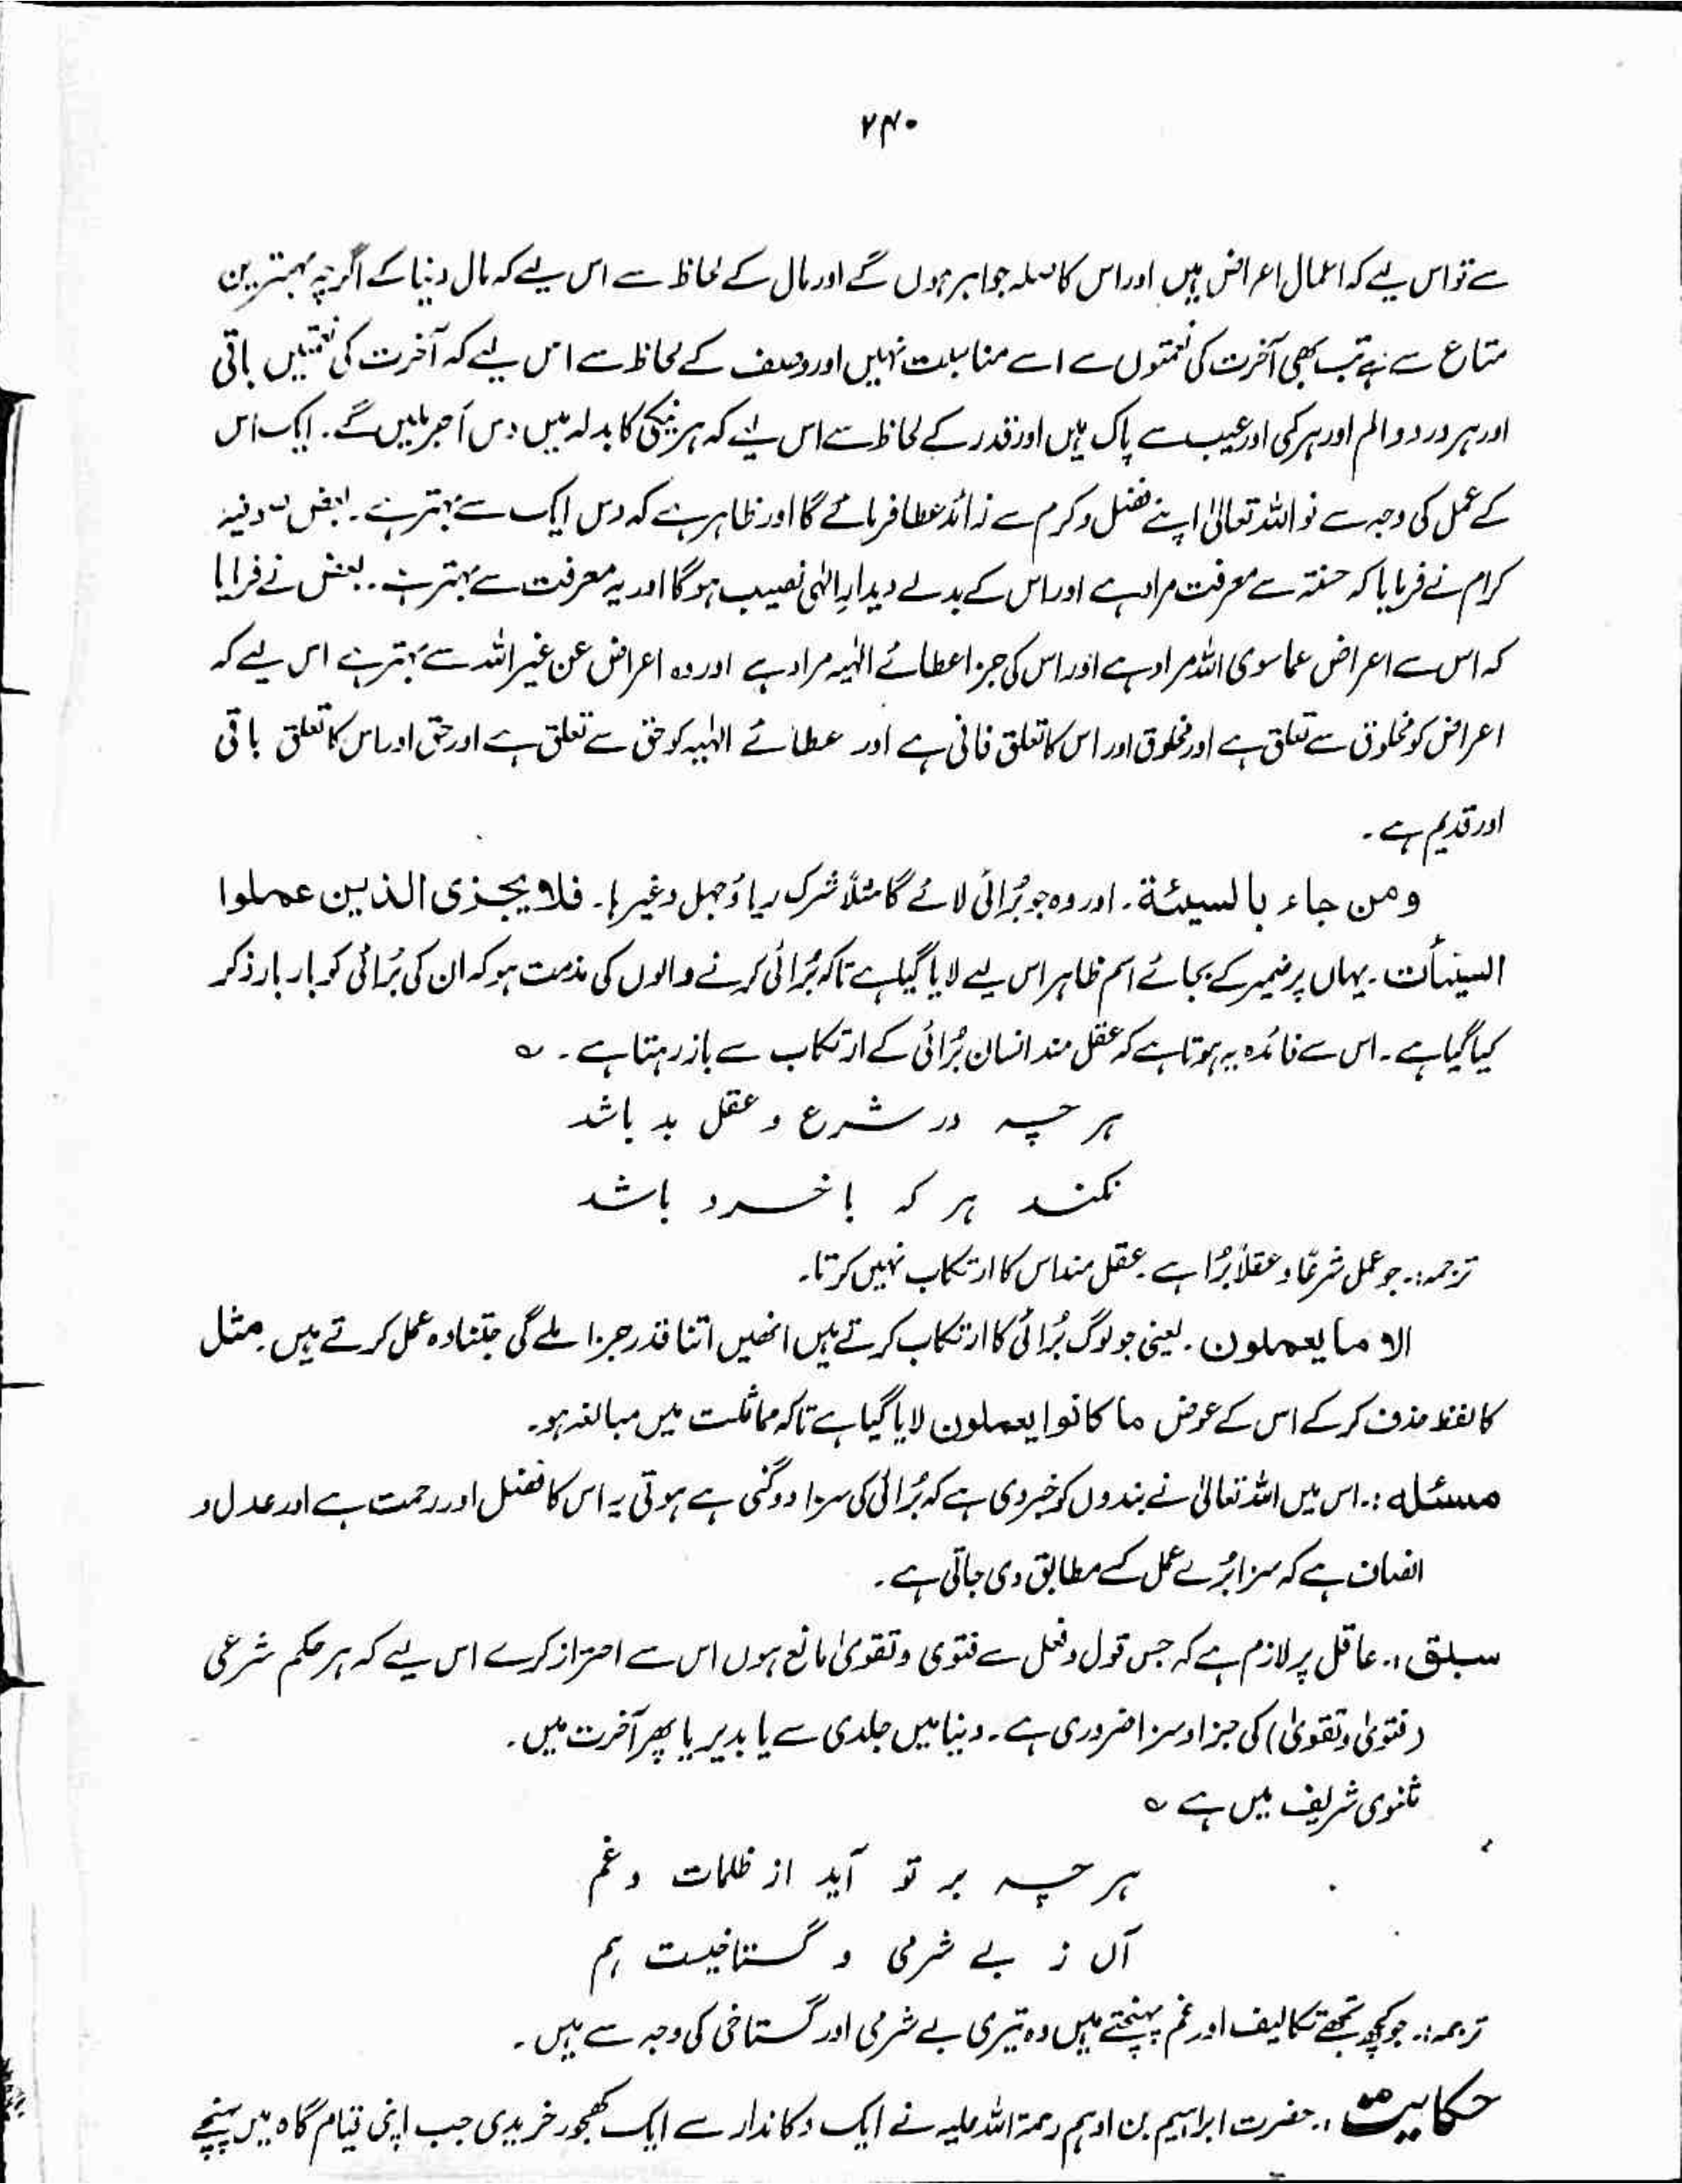 ۲۴۰
سے تو اس لیے کہ اعمال اعراض ہیں اور اس کا صلہ جواہر ہوں گے اور مال کے لحاظ سے اس لیے کہ مال دنیا کے اگرچہ بہترین
متاع سے ہے تب بھی آخرت کی نعمتوں سے اسے مناسبت نہیں اور وصف کے لحاظ سے اس لیے کہ آخرت کی نعمتیں باقی
اور ہر درد و الم اور ہر کمی اور عیب سے پاک ہیں اور قدر کے لحاظ سے اس لیے کہ ہر نیکی کا بدلہ میں دس اجر ملیں گے۔ ایک اس
کے عمل کی وجہ سے نو اللہ تعالیٰ اپنے فضل و کرم سے زائد عطا فرمائے گا اور ظاہر ہے کہ دس ایک سے بہتر ہے۔ بعض صوفیہ
کرام نے فرمایا کہ حسنۃ سے معرفت مراد ہے اور اس کے بدلے دیدارِ الٰہی نصیب ہوگا اور یہ معرفت سے بہتر ہے۔ بعض نے فرمایا
کہ اس سے اعراض عماسوی اللہ مراد ہے اور اس کی جزا عطائے الٰہیہ مراد ہے اور وہ اعراض عن غیر اللہ سے بہتر ہے اس لیے کہ
اعراض کو مخلوق سے تعلق ہے اور مخلوق اور اس کا تعلق فانی ہے اور عطائے الٰہیہ کو حق سے تعلق ہے اور حق اور اس کا تعلق باقی
اور قدیم ہے۔
ومن جاء بالسيئة۔ اور وہ جو بُرائی لائے گا مثلاً شرک ریاؤ جہل وغیرہا۔ فلا یجزی الذین عملوا
السیئأت۔ یہاں پر ضمیر کے بجائے اسم ظاہر اس لیے لایا گیا ہے تاکہ بُرائی کرنے والوں کی مذمت ہو کہ ان کی بُرائی کو بار بار ذکر
کیا گیا ہے۔ اس سے فائدہ یہ ہوتا ہے کہ عقل مند انسان بُرائی کے ارتکاب سے باز رہتا ہے۔ ؎
ہر چہ در شرع و عقل بد باشد
نکند ہر کہ با خرد باشد
ترجمہ:۔ جو عمل شرعًا و عقلاً بُرا ہے۔ عقل مند اس کا ارتکاب نہیں کرتا۔
الا ما یعملون۔ یعنی جو لوگ بُرائی کا ارتکاب کرتے ہیں انھیں اتنا قدر جزا ملے گی جتنا وہ عمل کرتے ہیں۔ مثل
کا لفظ حذف کر کے اس کے عوض ما کانوا یعملون لایا گیا ہے تاکہ مماثلت میں مبالغہ ہو۔
مسئلہ:۔ اس میں اللہ تعالیٰ نے بندوں کو خبر دی ہے کہ بُرائی کی سزا دوگنی ہے ہوتی یہ اس کا فضل اور رحمت ہے اور عدل و
انصاف ہے کہ سزا بُرے عمل کے مطابق دی جاتی ہے۔
سبق:۔ عاقل پر لازم ہے کہ جس قول و فعل سے فتوی و تقویٰ مانع ہوں اس سے احتراز کرے اس لیے کہ ہر حکم شرعی
(فتویٰ و تقویٰ) کی جزا و سزا ضروری ہے۔ دنیا میں جلدی سے یا بدیر یا پھر آخرت میں۔
ثنوی شریف میں ہے ؎
ہر چہ بر تو آید از ظلمات و غم
آں ز بے شرمی و گستاخیست ہم
ترجمہ:۔ جو کچھ تجھے تکالیف اور غم پہنچتے ہیں وہ تیری بے شرمی اور گستاخی کی وجہ سے ہیں۔
حکایت:۔ حضرت ابراہیم بن ادہم رحمۃ اللہ علیہ نے ایک دکاندار سے ایک کھجور خریدی جب اپنی قیام گاہ میں پہنچے